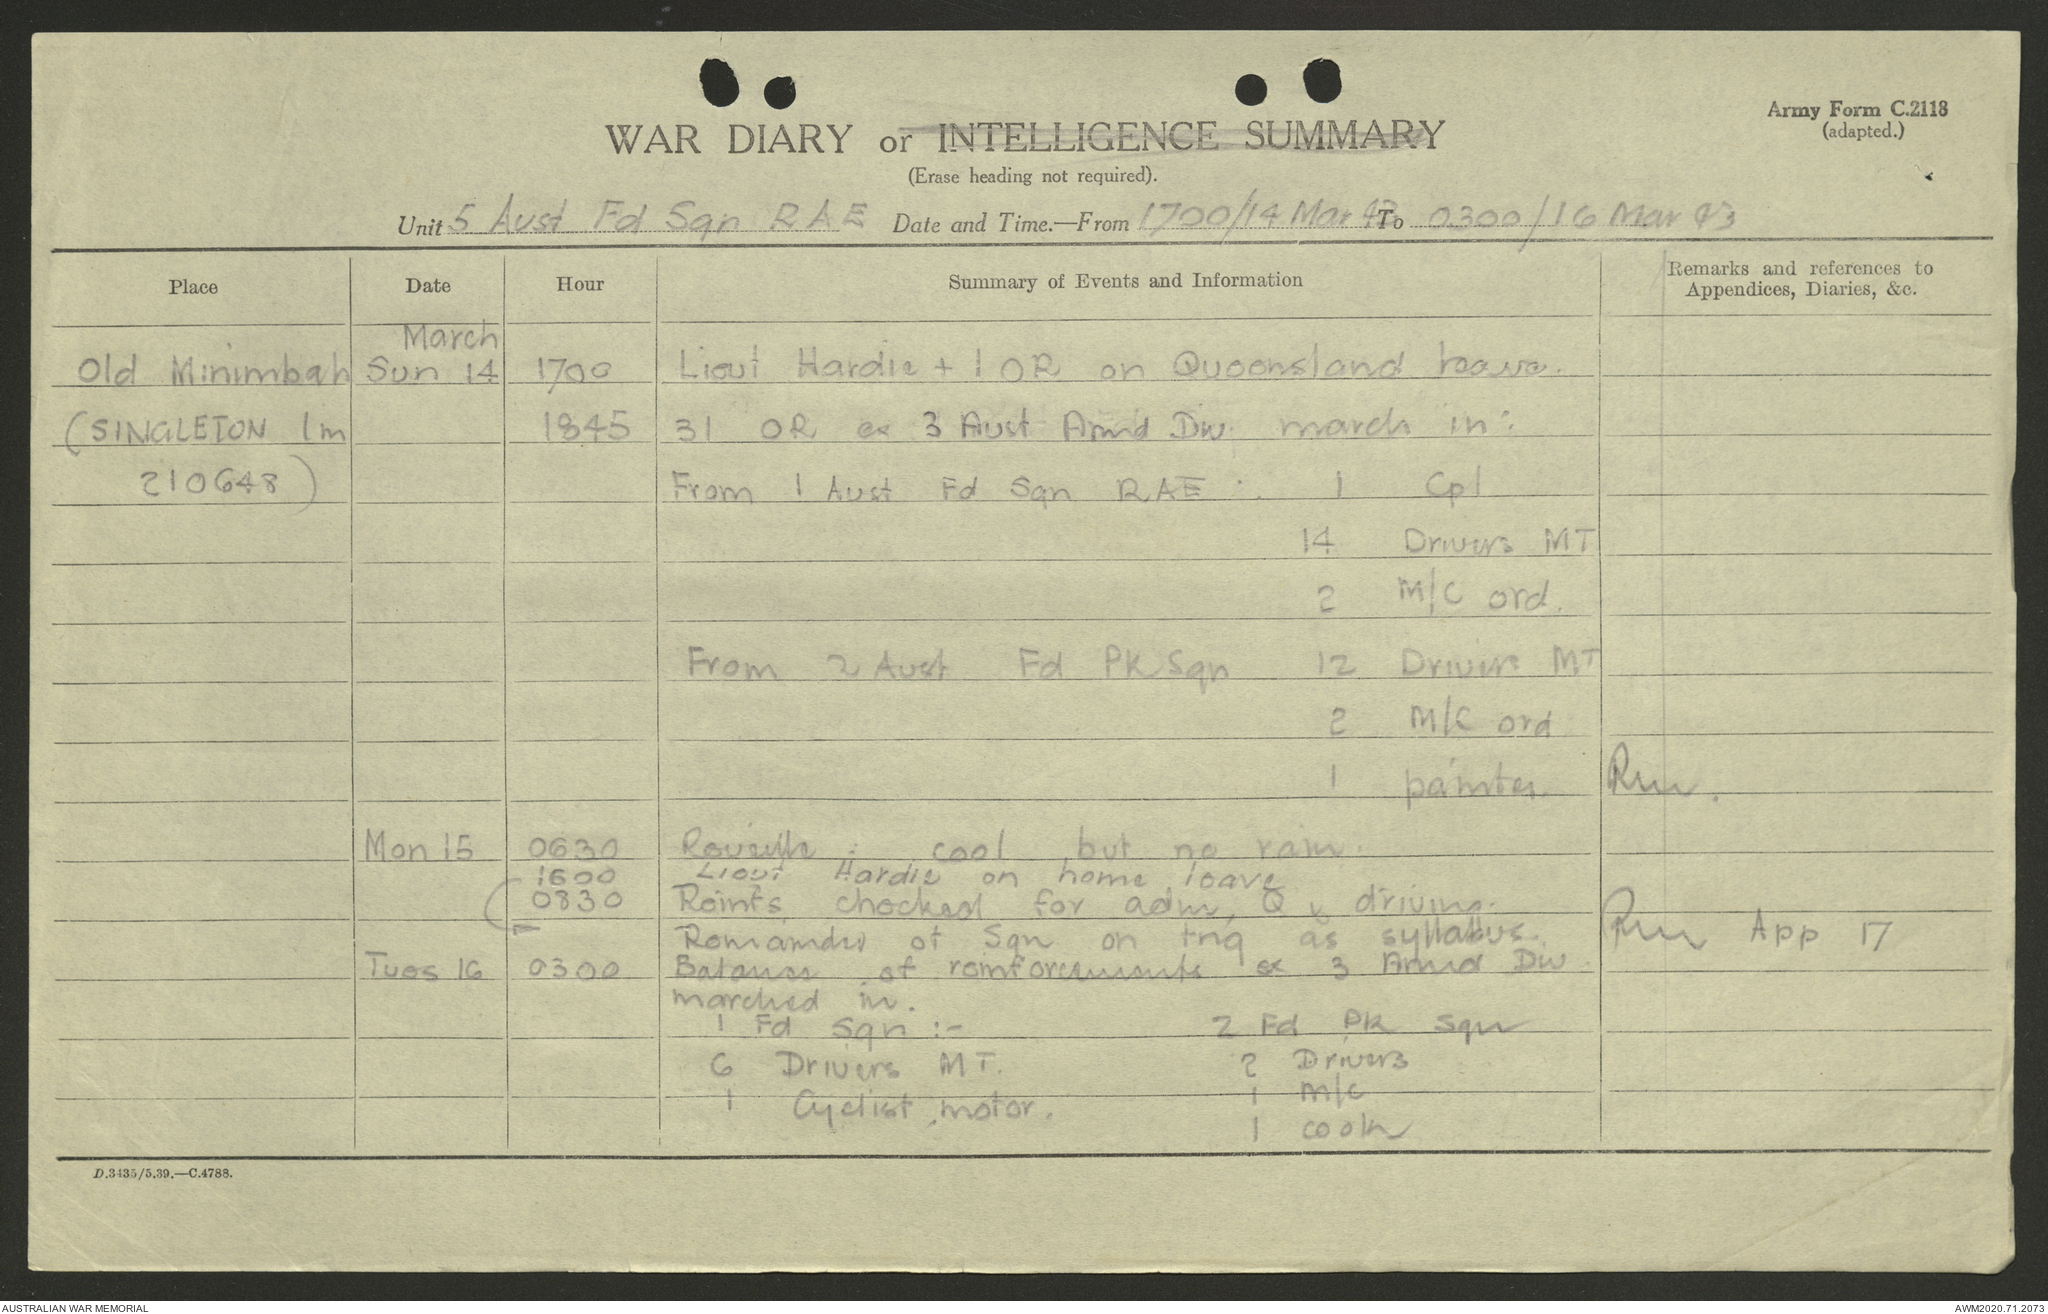 Army Form C.2118
(adapted.)
WAR DIARY or INTELLIGENCE SUMMARY
(Erase heading not required).
Unit 5 Aust Fd Sqn RAE Date and Time.—From 1700/14 Mar 43 To 0300/16 Mar 43
Place Date Hour Summary of Events and Information Remarks and references to
Appendices, Diaries, &c.
March
Old Minimbah Sun 14 1700 Lieut Hardie + 1 OR on Queensland leave.
(SINGLETON 1m 1845 31 OR ex 3 Aust Armd Div march in:
210648) From 1 Aust Fd Sqn RAE :. 1 Cpl
14 Drivers MT
2 M/C ord.
From 2 Aust Fd PK Sqn 12 Drivers MT
2 M/C ord
1 painter.
Mon 15 0630 Reveille : cool but no rain.
1600 Lieut Hardie on home leave
0830 Reints checked for adm, Q & driving.
Remainder of Sqn on tng as syllabus. App 17
Tues 16 0300 Balance of reinforcements ex 3 Armd Div
marched in.
1 Fd Sqn :- 2 Fd PK Sqn
6 Drivers MT. 2 Drivers
1 Cyclist, motor. 1 M/C
1 cook
D.3435/5.39.—C.4788.
AUSTRALIAN WAR MEMORIAL AWM2020.71.2073